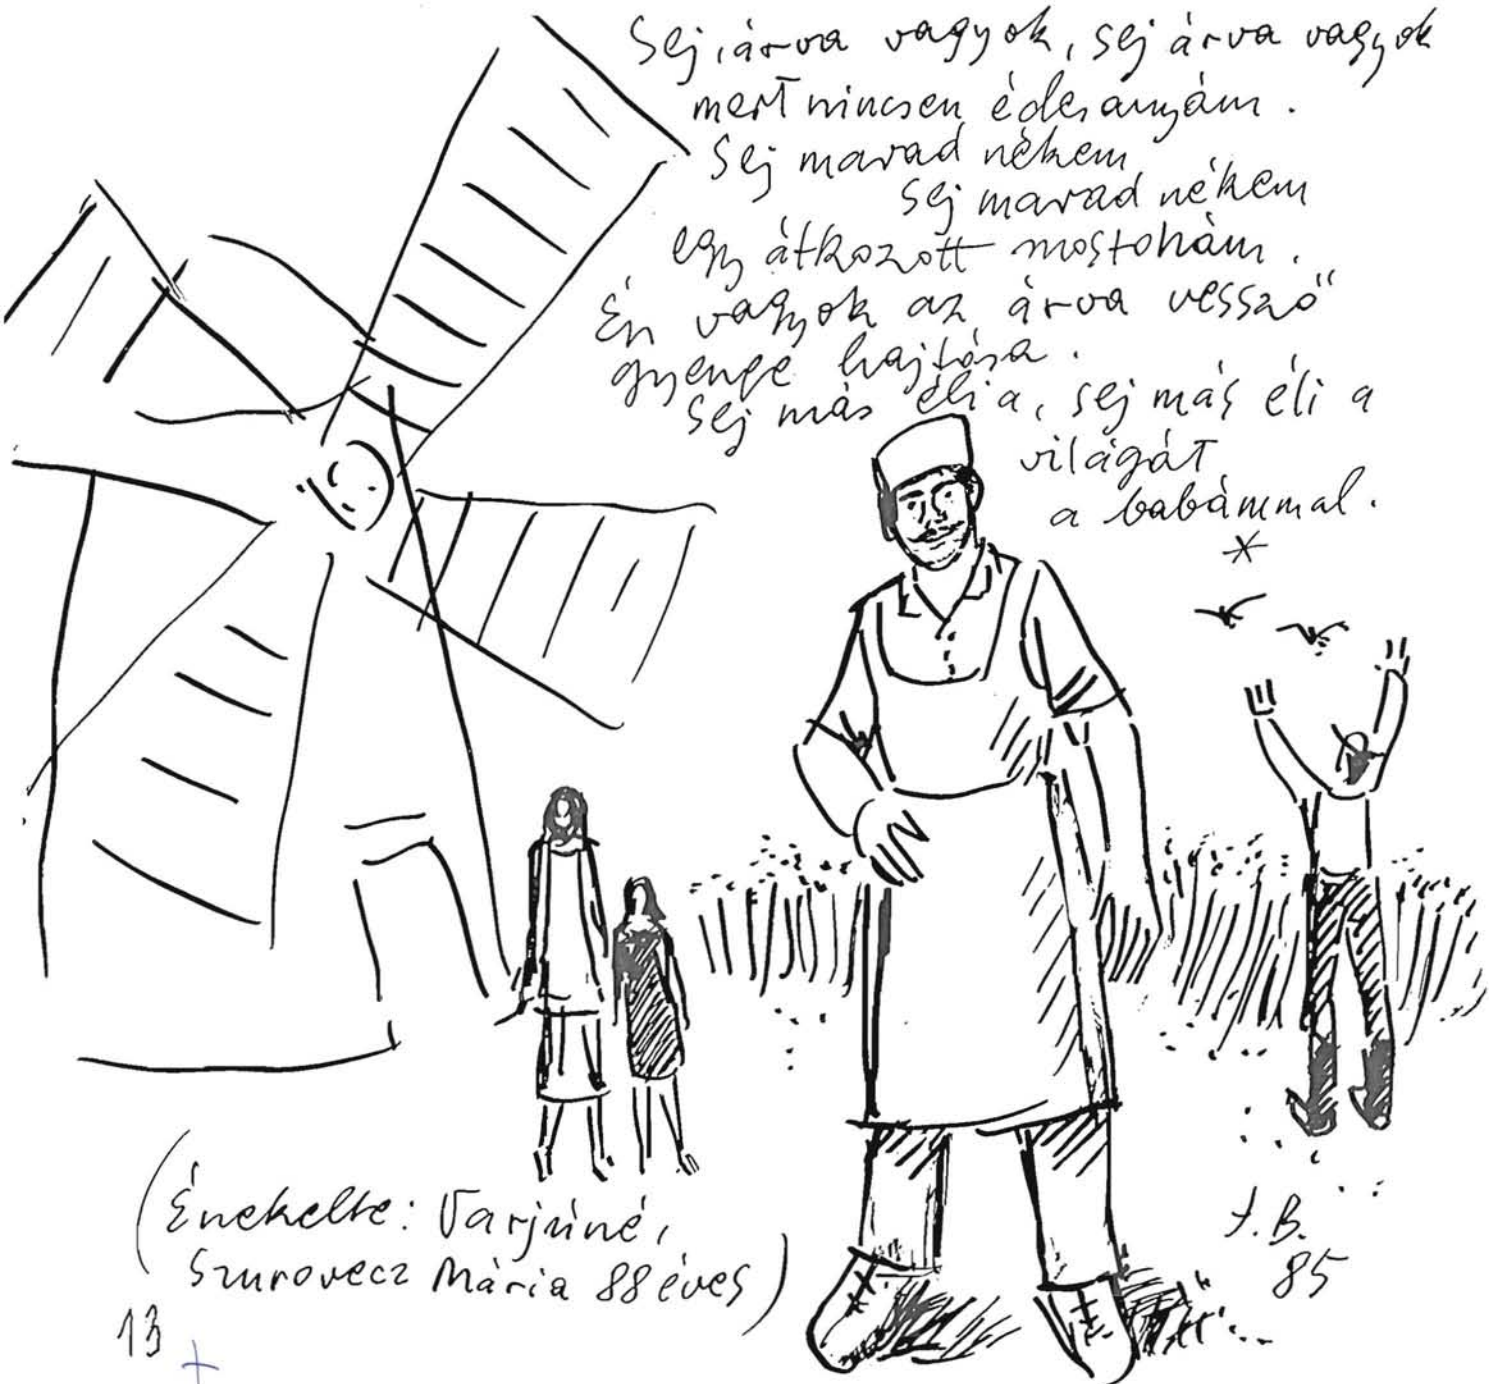 Sej, árva vagyok, sej árva vagyok
mert nincsen édesanyám.
Sej marad nékem
sej marad nékem
egy átkozott mostohám.
Én vagyok az árva vessző
gyenge hajtása.
Sej más éli a, sej más éli a
világát
a babámmal.
*
(Énekelte: Varjúné,
Szurovecz Mária 88 éves)
13
J.B.
85